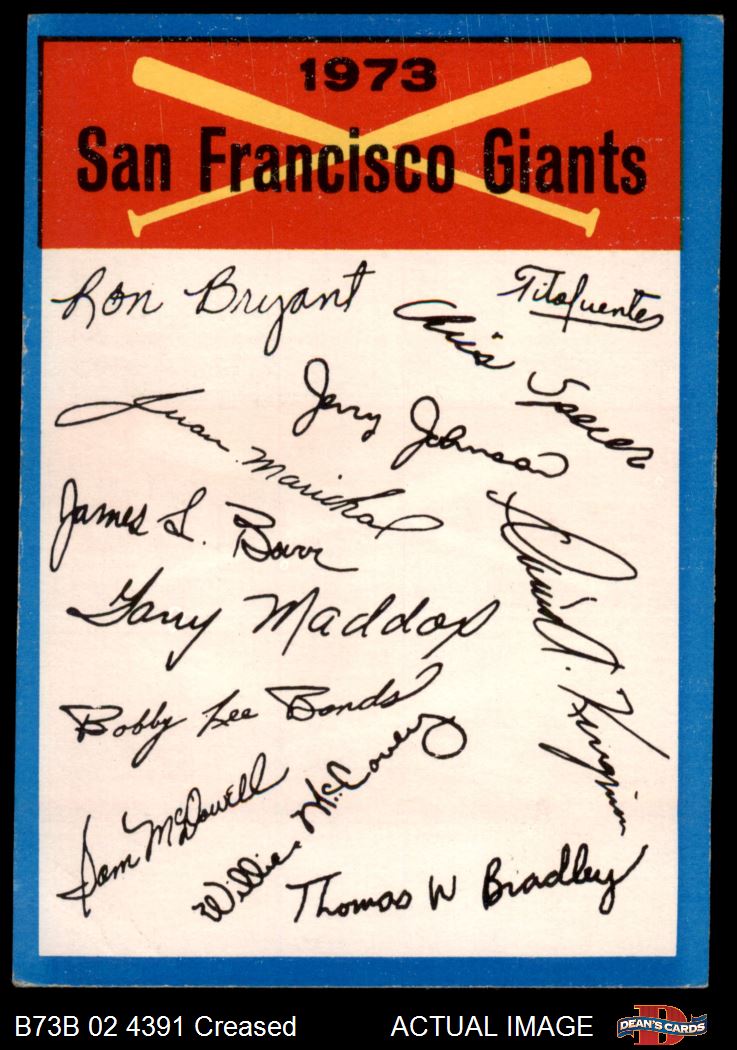 1973
San Francisco Giants
Ron Bryant
Tito Fuentes
Chris Speier
Jerry Johnson
Juan Marichal
James L. Barr
David A. Kingman
Garry Maddox
Bobby Lee Bonds
Willie McCovey
Sam McDowell
Thomas W Bradley
B73B 02 4391 Creased
ACTUAL IMAGE
D
DEAN'S CARDS